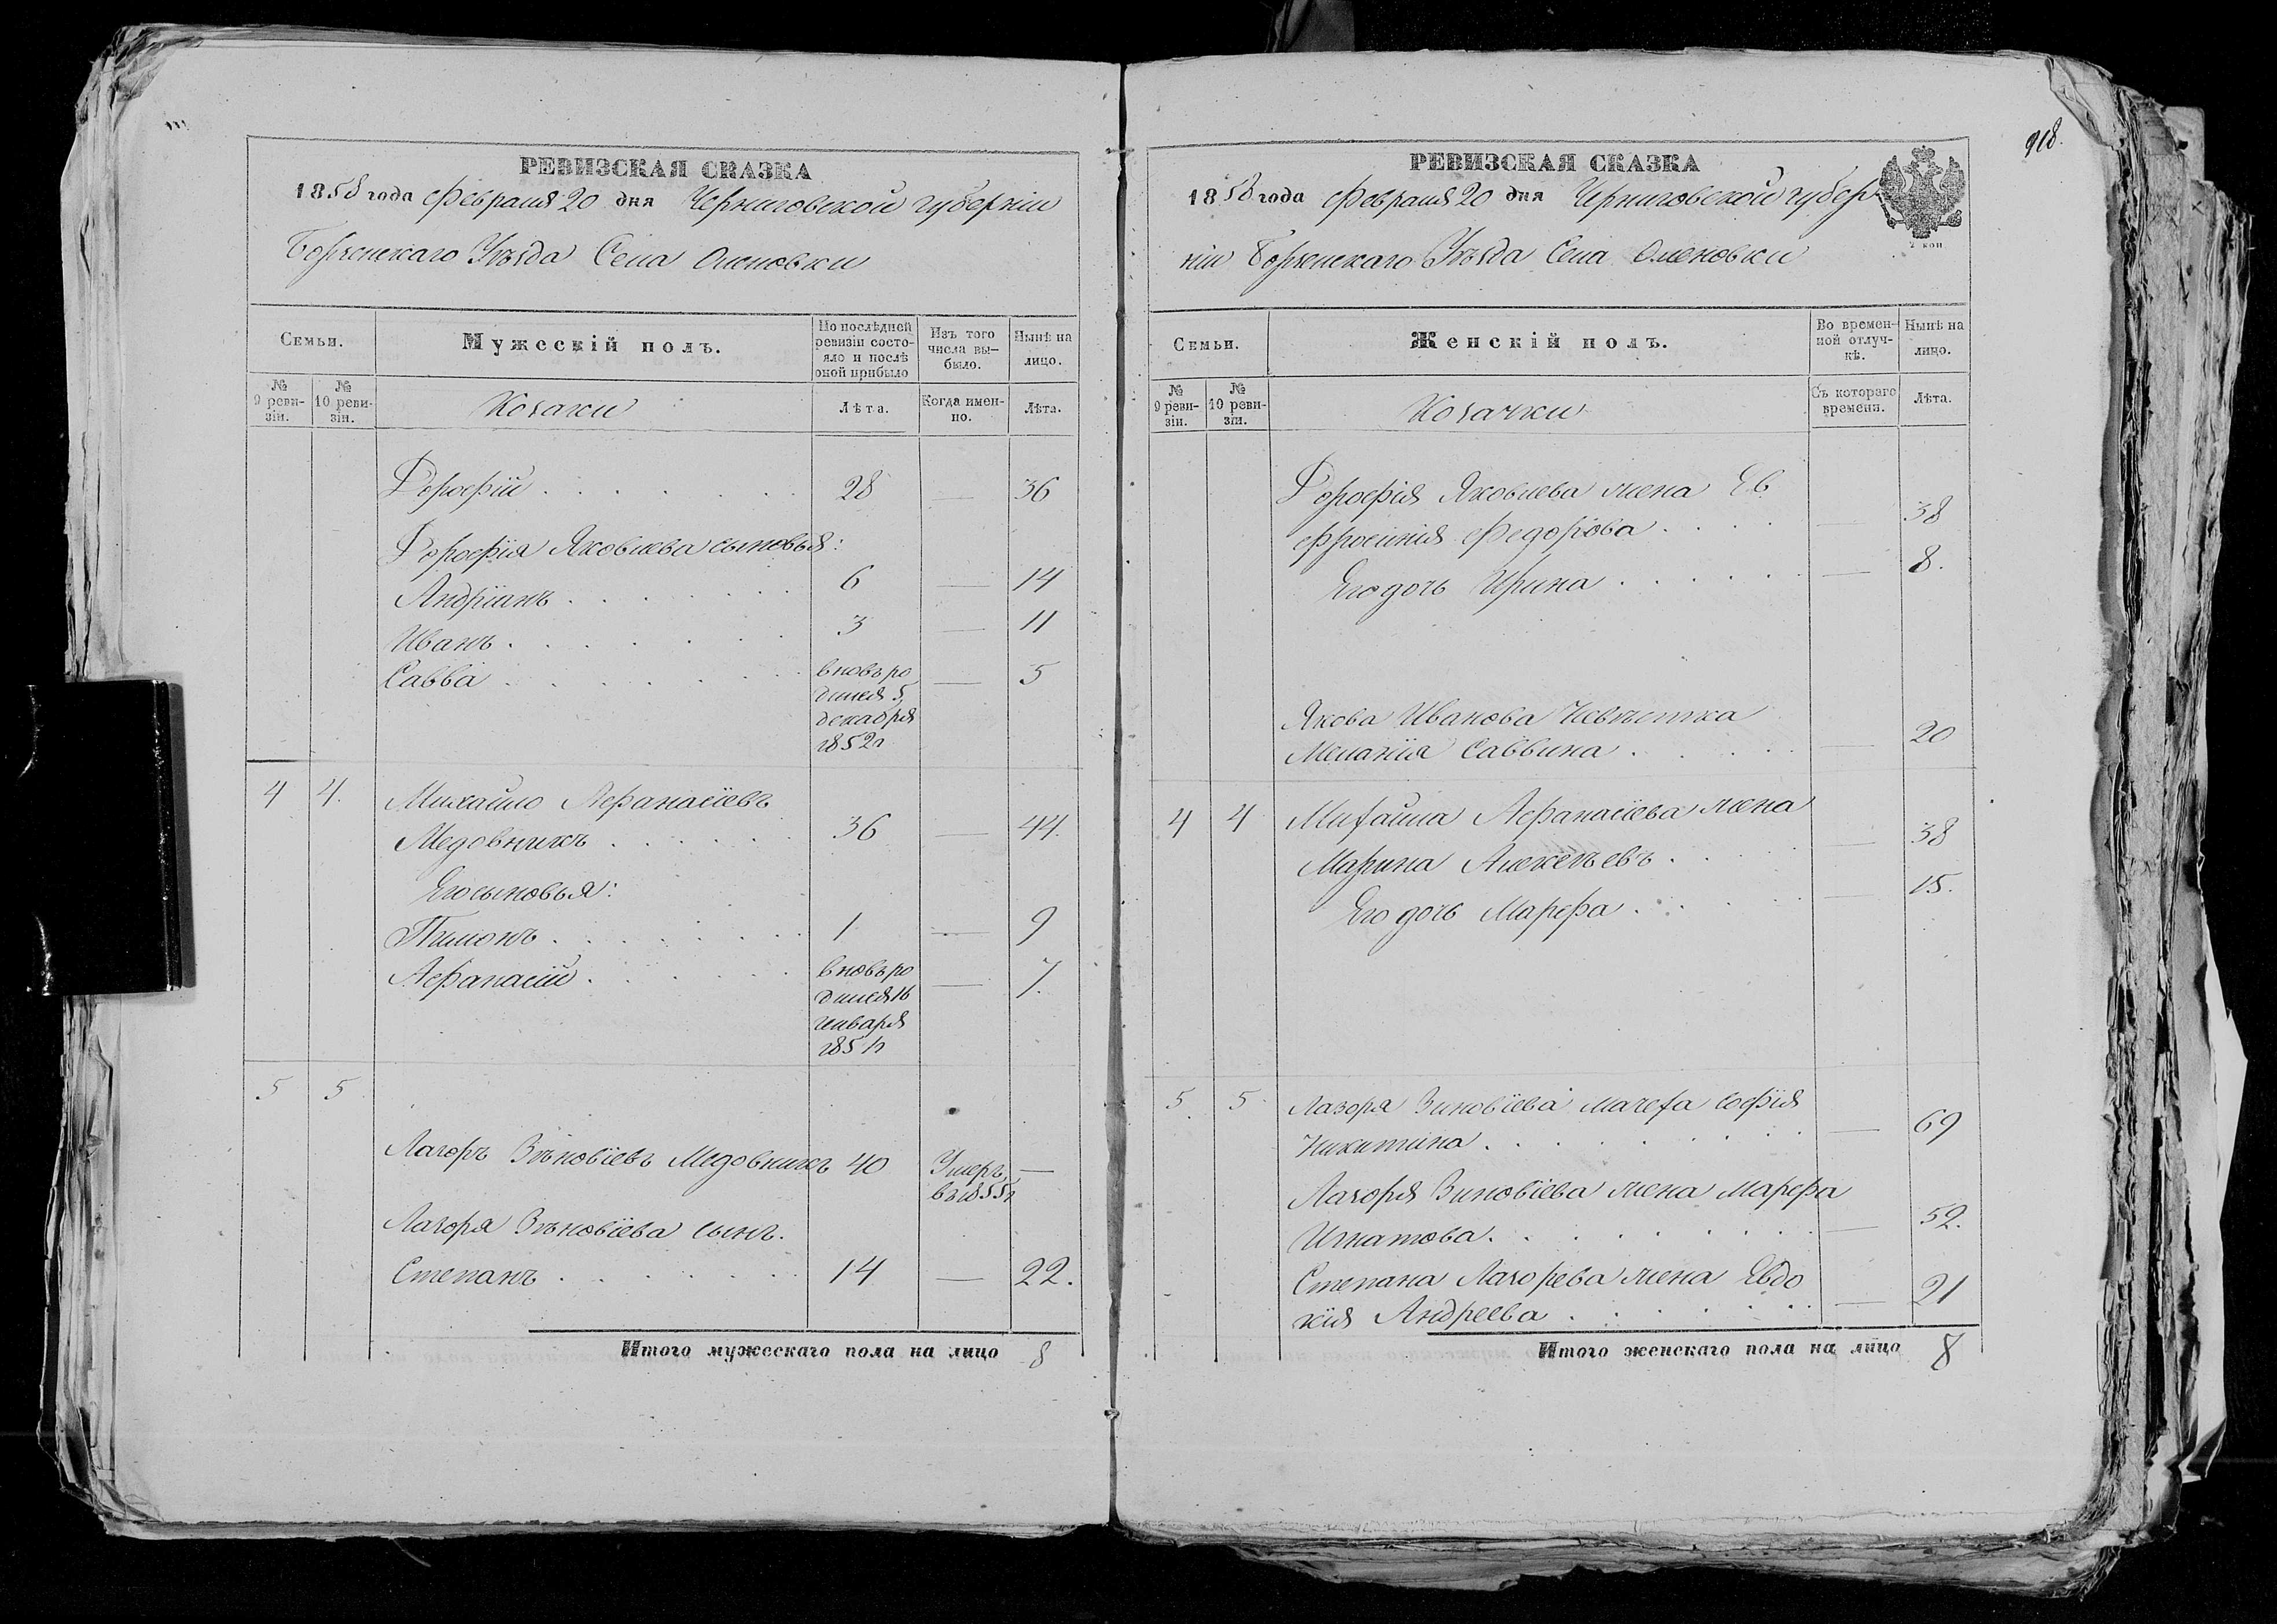 РЕВИЗСКАЯ СКАЗКА
1858 года Февраля 20 дня Черниговской губерніи
Борзенскаго Уѣзда Села Оленовки
Семьи.
Мужескій полъ.
По послѣдней ревизіи состояло и послѣ оной прибыло
Изъ того числа выбыло.
Нынѣ на лицо.
№ 9 ревизіи.
№ 10 ревизіи.
Козаки
Лѣта.
Когда именно.
Лѣта.
Дорофій . . . . . . . 28 — 36
Дорофія Яковлева сыновья:
Андріанъ . . . . . . . 6 — 14
Иванъ . . . . . . . 3 — 11
Савва . . . . . . . вновь ро — 5
дился 5
декабря
1852г
4 4. Михайло Афанасіевъ
Медовникъ . . . . . 36 — 44.
Его сыновья:
Тимонъ . . . . . . . 1 — 9
Афанасій . . . . . . вновь ро — 7.
дился 16
генваря
1851г
5 5
Лазорь Зѣновіевъ Медовникъ 40 Умеръ —
въ 1855г
Лазоря Зѣновіева сынъ.
Степанъ . . . . . . . 14 — 22.
Итого мужескаго пола на лицо 8
918.
РЕВИЗСКАЯ СКАЗКА
1858 года Февраля 20 дня Черниговской губер
ніи Борзенскаго Уѣзда Села Оленовки
2 коп
Семьи.
Женскій полъ.
Во временной отлучкѣ.
Нынѣ на лицо.
№ 9 ревизіи.
№ 10 ревизіи.
Козачки
Съ котораго времени.
Лѣта.
Дорофія Яковлева жена Ев
фросинія Федорова . . . . — 38
Его дочь Ирина . . . . . — 8.
Якова Иванова Невѣстка
Меланія Саввина . . . . . — 20
4 4 Михайла Афанасіева жена
Марина Алексѣевъ . . . . — 38
Его дочь Марфа . . . . . — 15.
5. 5. Лазоря Зиновіева мачеха Софія
Никитина . . . . . . . . — 69
Лазоря Зиновіева жена Марфа
Игнатова . . . . . . . . — 52.
Степана Лазорева жена Евдо
кія Андреева . . . . . . . — 21
Итого женскаго пола на лицо 8